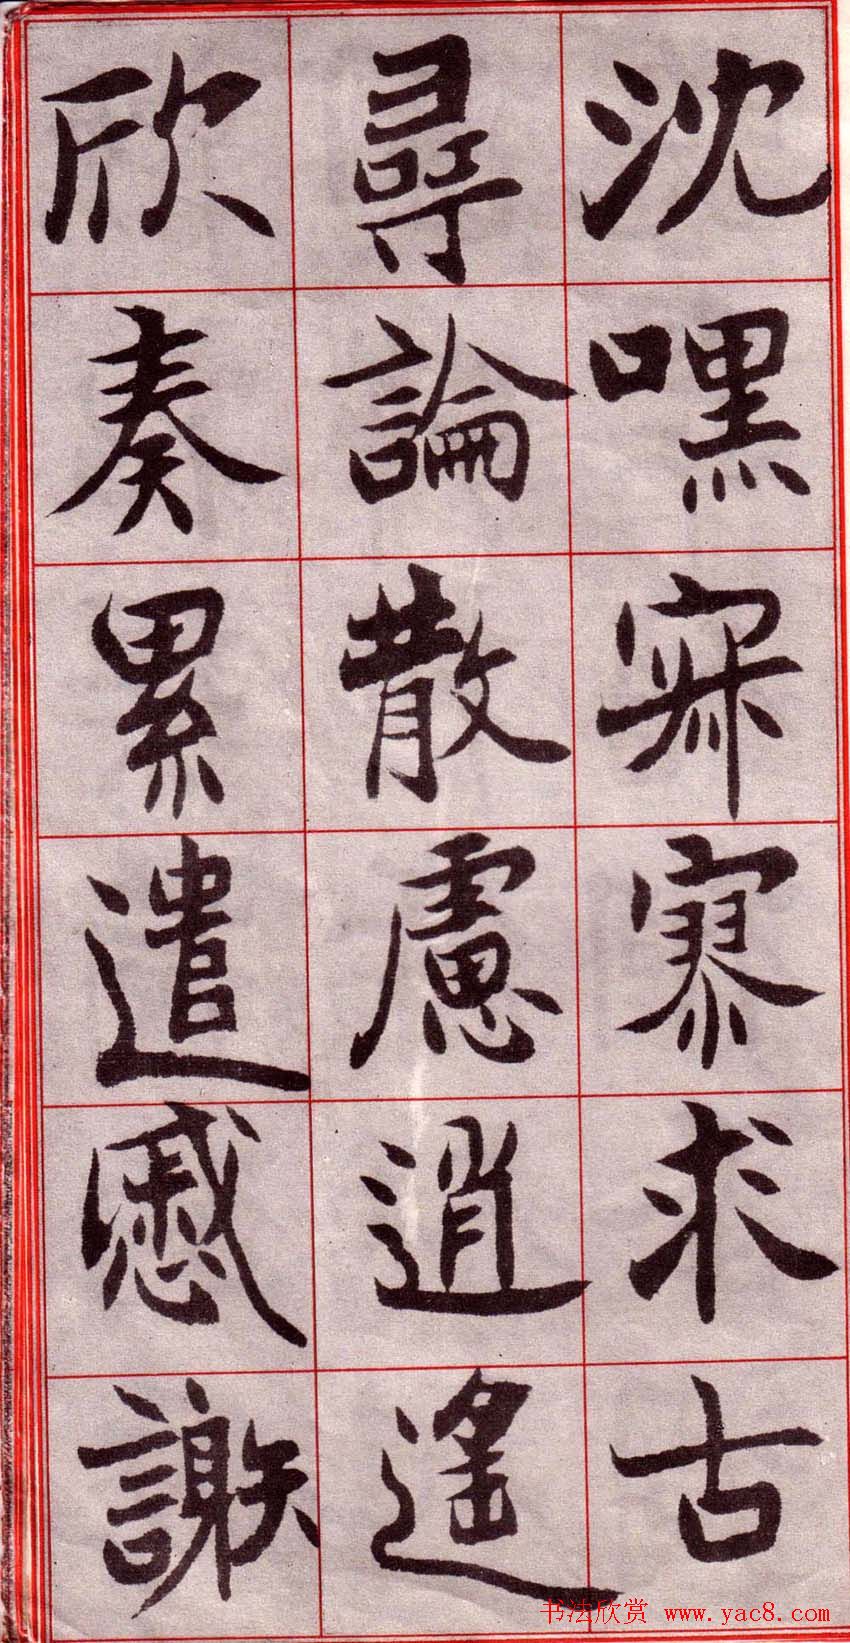 沈嘿寂寥求古
尋論散慮逍遥
欣奏累遣慼謝
书法欣赏 www.yac8.com